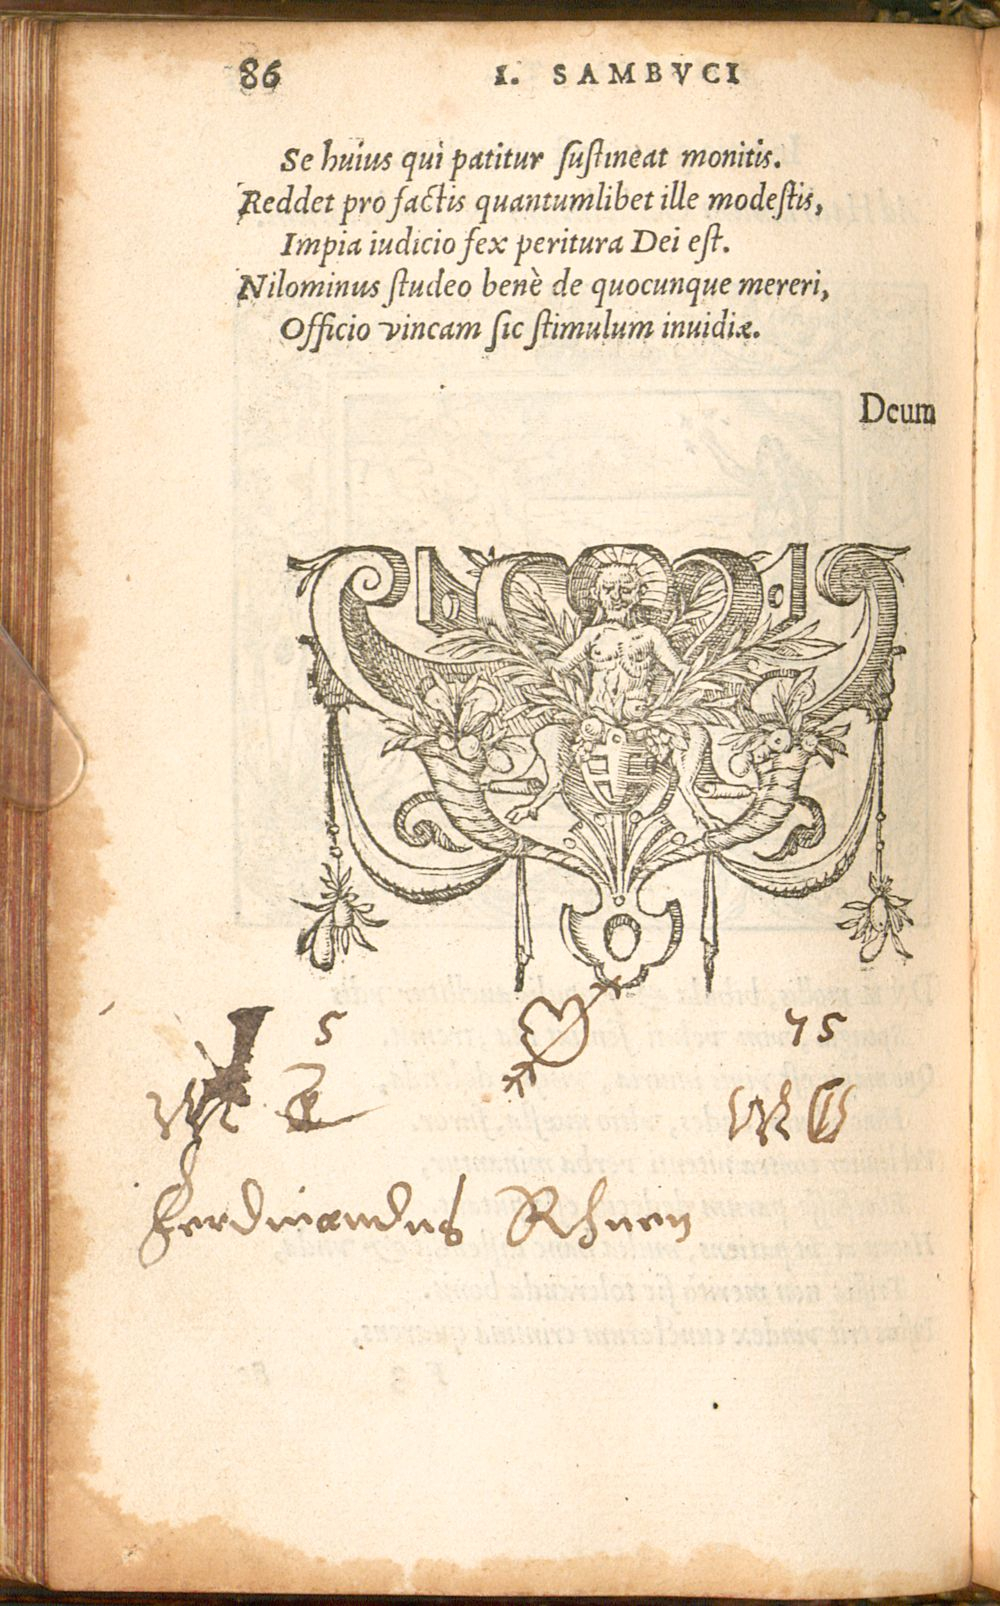 86 I. SAMBVCI
Se huius qui patitur ſuſtineat monitis.
Reddet pro factis quantumlibet ille modeſtis,
Impia iudicio fex peritura Dei eſt.
Nilominus ſtudeo benè de quocunque mereri,
Officio vincam ſic ſtimulum inuidiæ.
Deum
5 75
Ferdinandus Rhuen